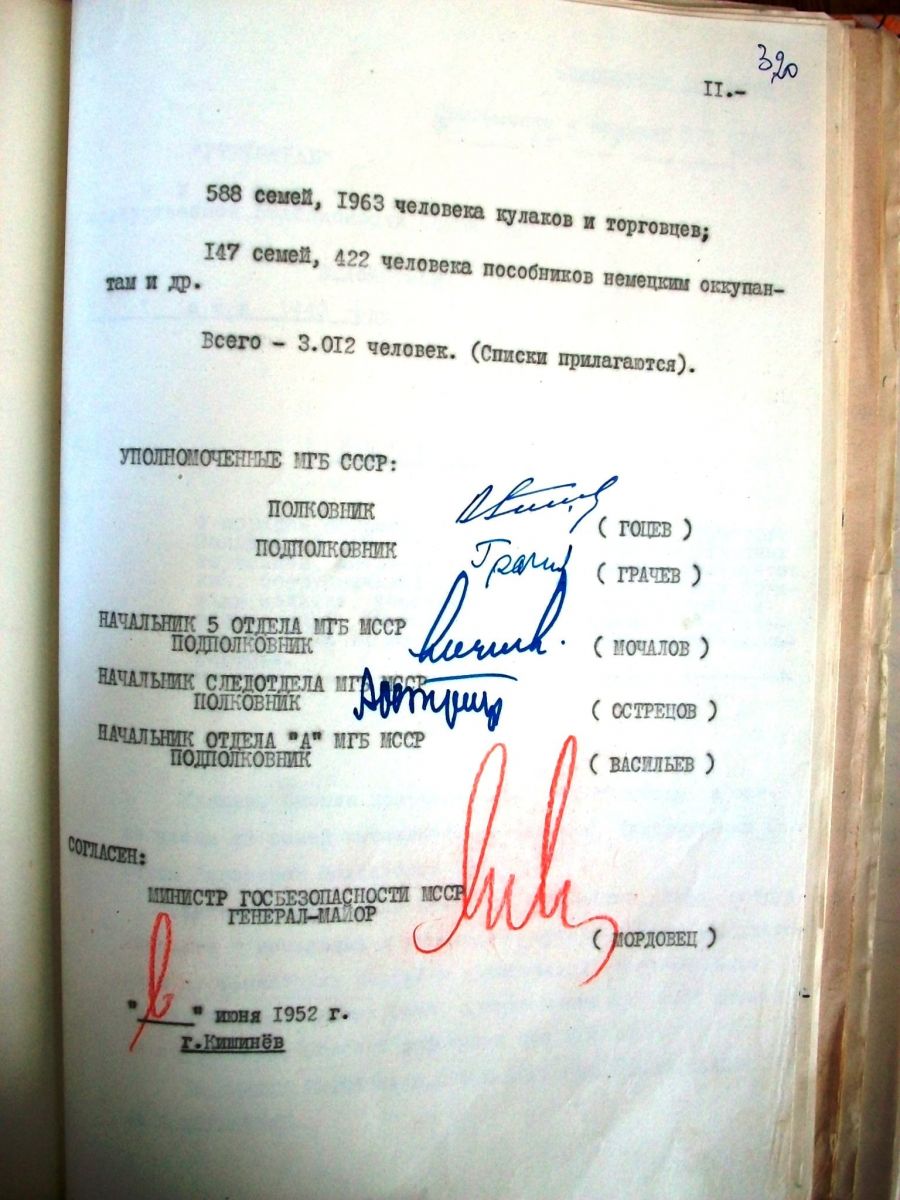 320
II.-
588 семей, I963 человека кулаков и торговцев;
I47 семей, 422 человека пособников немецким оккупан-
там и др.
Всего - 3.0I2 человек. (Списки прилагаются).
УПОЛНОМОЧЕННЫЕ МГБ СССР:
ПОЛКОВНИК
( ГОЦЕВ )
ПОДПОЛКОВНИК Грачев
( ГРАЧЕВ )
НАЧАЛЬНИК 5 ОТДЕЛА МГБ МССР
ПОДПОЛКОВНИК ( МОЧАЛОВ )
НАЧАЛЬНИК СЛЕДОТДЕЛА МГБ МССР
ПОЛКОВНИК ( ОСТРЕЦОВ )
НАЧАЛЬНИК ОТДЕЛА "А" МГБ МССР
ПОДПОЛКОВНИК ( ВАСИЛЬЕВ )
СОГЛАСЕН:
МИНИСТР ГОСБЕЗОПАСНОСТИ МССР
ГЕНЕРАЛ-МАЙОР
( МОРДОВЕЦ )
" " июня I952 г.
г.Кишинёв